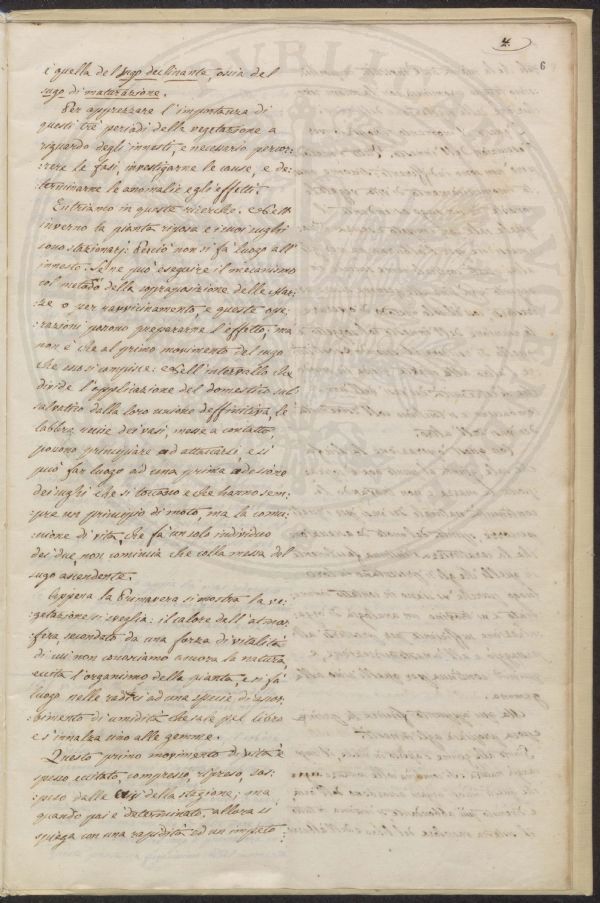 4.
6
è quella del sugo declinante, ossia del
sugo di maturazione.
Per apprezzare l'importanza di
questi tre periodi della vegetazione a
riguardo degli innesti, è necessario percor:
:rere le fasi, investigarne le cause, e de:
:terminarne le anomalie e gli effetti.
Entriamo in queste ricerche. Nell'
inverno la pianta riposa e i suoi sughi
sono stazionarj: Perciò non si fà luogo all'
innesto. Se ne può eseguire il mecanismo
col metodo della sopraposizione delle Mar:
:ze o per ravvicinamento, e queste ope:
:razioni possono prepararne l'effetto; ma
non è che al primo movimento del sugo
che esso si compisce. Nell'intervallo che
divide l'applicazione del domestico sul
salvatico dalla loro unione deffinitiva, le
labbra recise dei vasi, messe a contatto,
possono principiare ad attaccarsi, e si
può far luogo ad una prima adesione
dei sughi che si toccano e che hanno sem:
:pre un principio di moto, ma la comu:
:nione di vita, che fà un solo individuo
dei due, non comincia che colla mossa del
sugo ascendente.
Appena la Primavera si mostra la ve:
:getazione si sveglia: il calore dell'atmos:
:fera secondato da una forza di vitalità
di cui non conosciamo ancora la natura,
eccita l'organismo della pianta, e si fà
luogo nelle radici ad una specie di assor:
:bimento di umidità che sale pel libro
e s'innalza sino alle gemme.
Questo primo movimento di vita è
spesso eccitato, compresso, ripreso, sos:
:peso dalle crisi della stagione; ma
quando poi è determinato, allora si
spiega con una rapidità ed un impeto: